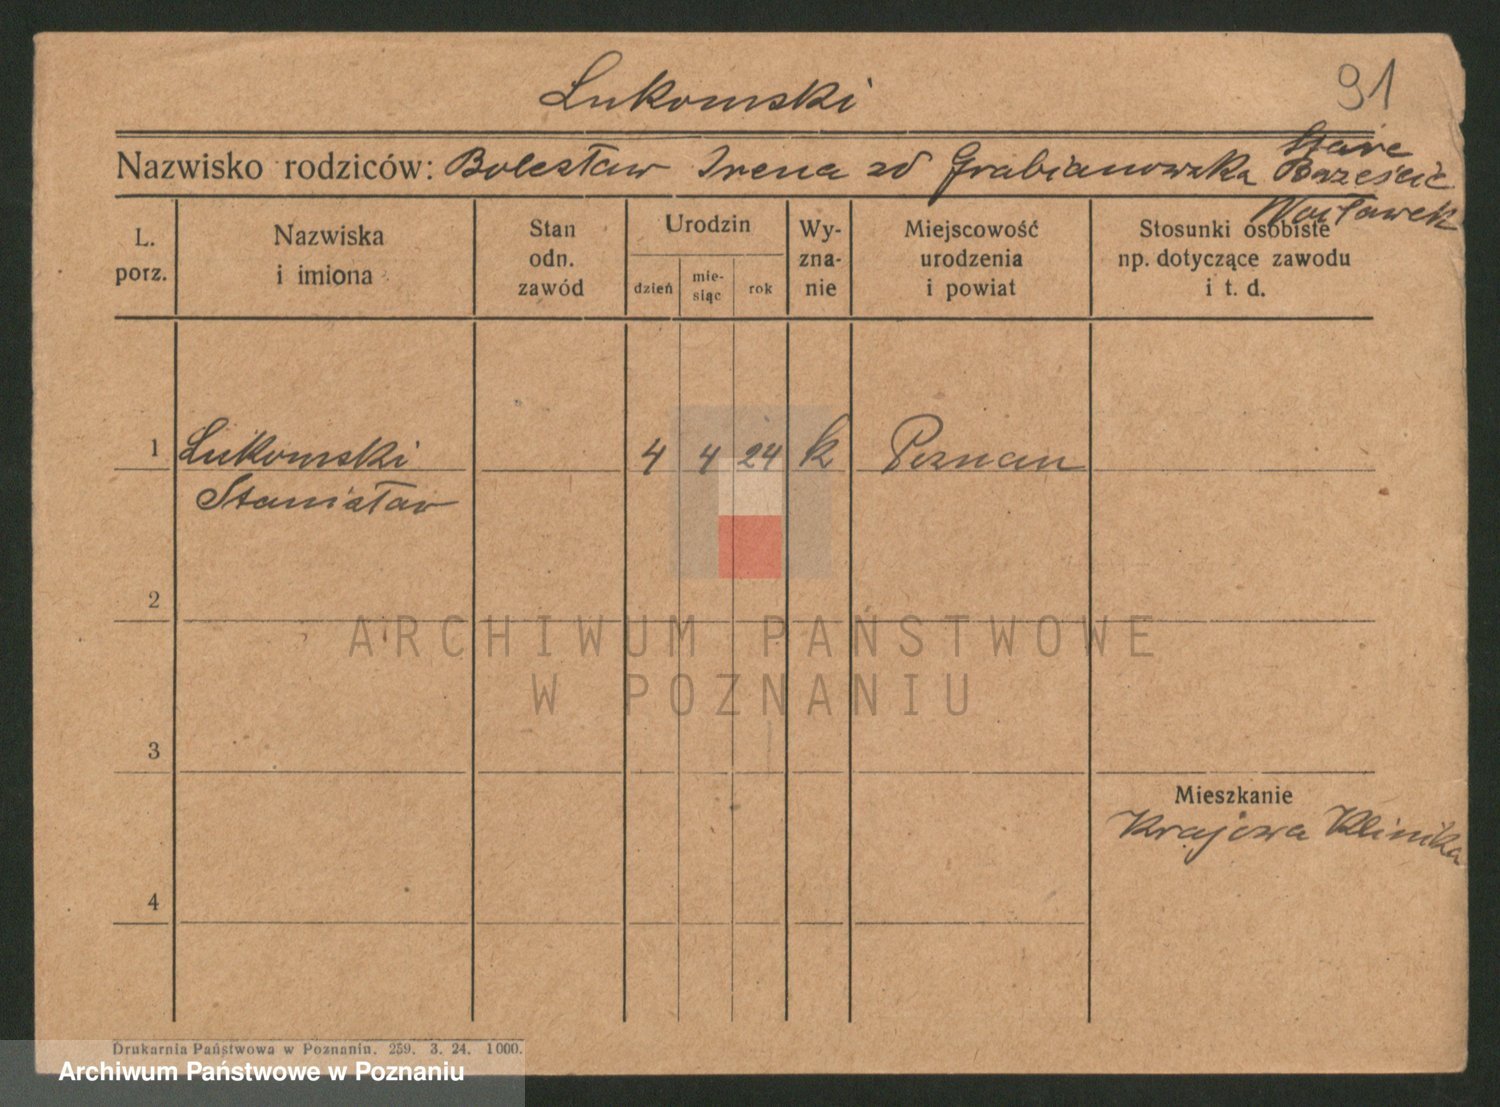 Lukomski
91
Nazwisko rodziców: Bolesław Irena zd Grabianowska Stare
Brzeście
Włocławek
L. porz.
Nazwiska i imiona
Stan odn. zawód
Urodzin
dzień
mie-
siąc
rok
Wy-
zna-
nie
Miejscowość
urodzenia
i powiat
Stosunki osobiste
np. dotyczące zawodu
i t. d.
1 Lukomski 4 4 24 k Poznan
Stanisław
2
ARCHIWUM PAŃSTWOWE
W POZNANIU
3
Mieszkanie
Krajowa Klinika
4
Drukarnia Państwowa w Poznaniu. 259. 3. 24. 1000.
Archiwum Państwowe w Poznaniu